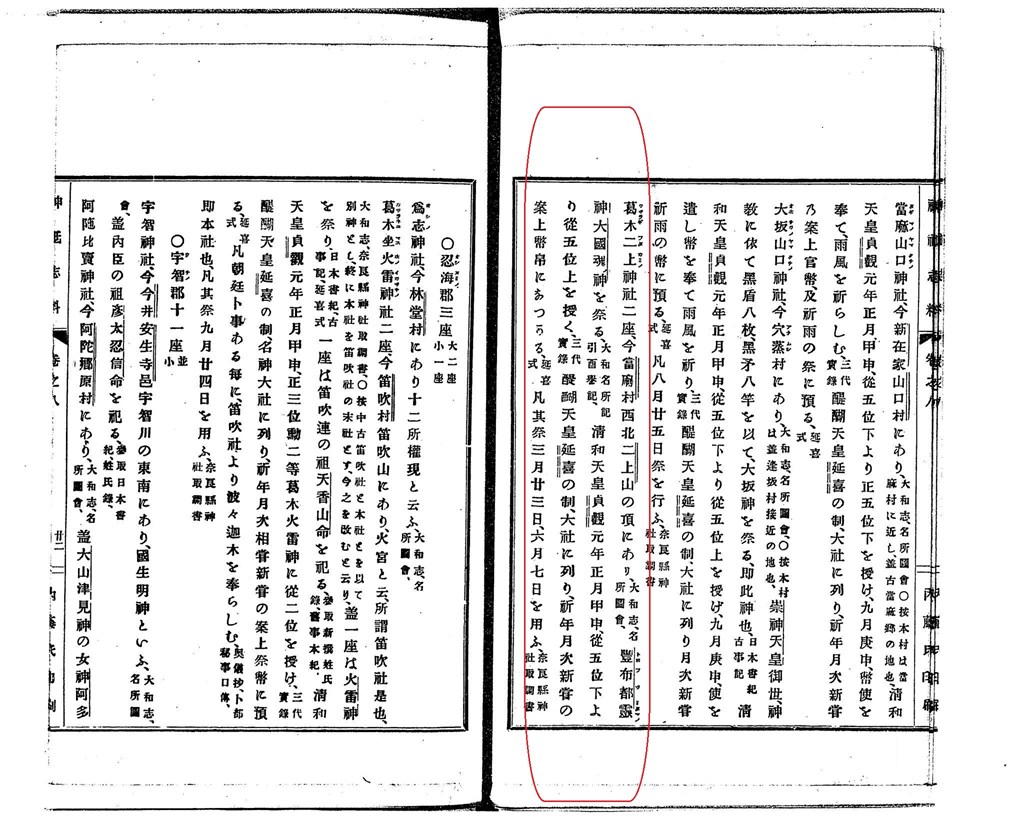 當麻山口神社、今新在家山口村にあり、大和志名所圖會〇按木村は當麻村に近し、蓋古當麻鄕の地也、清和
天皇貞觀元年正月甲申、從五位下より正五位下を授け、九月庚申、幣使を
奉て、雨風を祈らしむ、三代實錄醍醐天皇延喜の制、大社に列り、祈年月次新甞
乃案上官幣、及祈雨の祭に預る、延喜式
大坂山口神社、今穴蒸村にあり、大和志、名所圖會、〇按木村は蓋逢坂村接近の地也、崇神天皇御世、神
敎に依て黑盾八枚、黑矛八竿を以て、大坂神を祭る、卽此神也、日本書紀古事記清
和天皇貞觀元年正月甲申、從五位下より從五位上を授け、九月庚申、使を
遣し幣を奉て雨風を祈り、三代實錄醍醐天皇延喜の制、大社に列り月次新甞
祈雨の幣に預る、延喜式凡八月廿五日祭を行ふ、奈良縣神社取調書
葛木二上神社二座、今當麻村西北二上山の頂にあり、大和志、名所圖會、豐布都靈
神大國魂神を祭る、大和名所記引西譽記、清和天皇貞觀元年正月甲申、從五位下よ
り從五位上を授く、三代實錄醍醐天皇延喜の制、大社に列り、祈年月次新甞の
案上幣帛にあつかる、延喜式凡其祭三月廿三日、六月七日を用ふ、奈良縣神社取調書
〇忍海郡三座大二座小一座
爲志神社、今林堂村にあり十二所權現と云ふ、大和志、名所圖會、
葛木坐火雷神社二座、今笛吹村笛吹山にあり、火宮と云、所謂笛吹社是也、
大和志、奈良縣神社取調書、〇按中古笛吹社と本社とを以て別神とし、終に本社を笛吹社の末社とす、今之を改むと云り、蓋一座は火雷神
を祭り、日本書紀、古事記延喜式一座は笛吹連の祖天香山命を祀る、參取新撰姓氏錄、舊事本紀、清和
天皇貞觀元年正月甲申、正三位勳二等葛木火雷神に從二位を授け、三代實錄
醍醐天皇延喜の制、名神大社に列り、祈年月次相甞新甞の案上祭幣に預
る、延喜式凡朝廷卜事ある每に、笛吹社より波々迦木を奉らしむ、奧儀抄、卜部祕事口傳、
卽本社也、凡其祭九月廿四日を用ふ、奈良縣神社取調書
〇宇智郡十一座並小
宇智神社、今今井安生寺邑宇智川の東南にあり、國生明神といふ、大和志、名所圖
會、蓋內臣の祖彥太忍信命を祀る、參取日本書紀、姓氏錄、
阿陁比賣神社、今阿陀鄕原村にあり、大和志、名所圖會、蓋大山津見神の女神阿多
神祇志料 卷之八 廿二